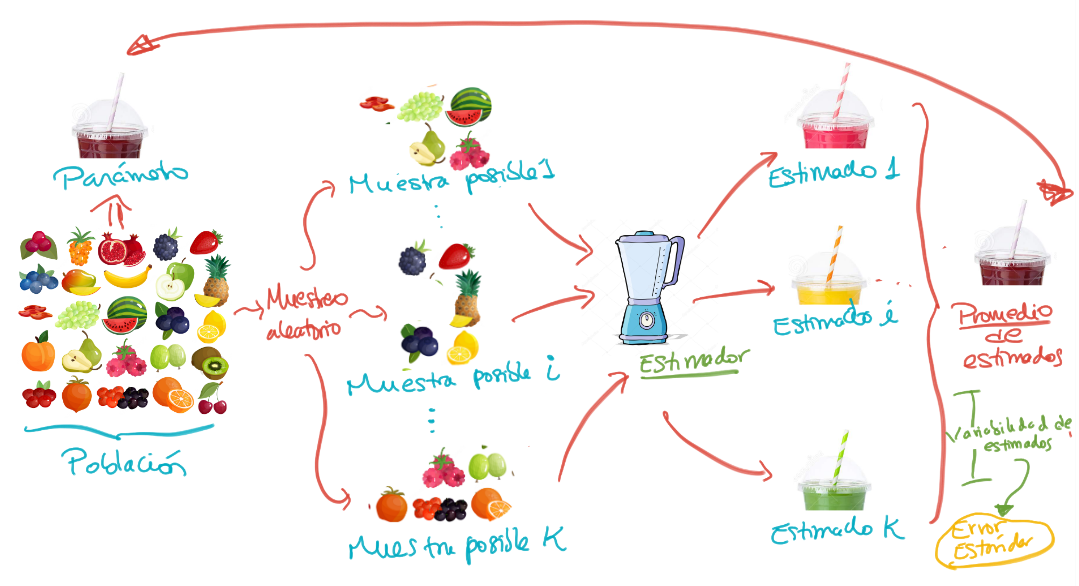 Parámetro
Población
Muestreo
aleatorio
Muestra posible 1
Muestra posible i
Muestra posible K
Estimador
Estimado 1
Estimado i
Estimado K
Promedio
de
estimados
Variabilidad de
estimados
Error
Estándar